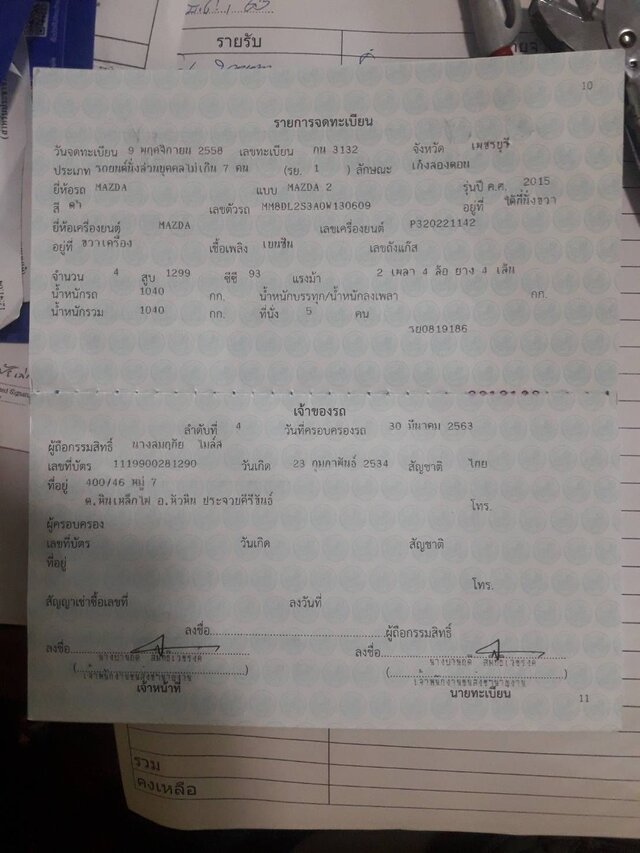 รายรับ
10
รายการจดทะเบียน
วันจดทะเบียน 9 พฤศจิกายน 2558 เลขทะเบียน กน 3132 จังหวัด เพชรบุรี
ประเภท รถยนต์นั่งส่วนบุคคลไม่เกิน 7 คน (รย. 1 ) ลักษณะ เก๋งสองตอน
ยี่ห้อรถ MAZDA แบบ MAZDA 2 รุ่นปี ค.ศ. 2015
สี ดำ เลขตัวรถ MM8DL2S3A0W130609 อยู่ที่ ใต้ที่นั่งขวา
ยี่ห้อเครื่องยนต์ MAZDA เลขเครื่องยนต์ P320221142
อยู่ที่ ขวาเครื่อง เชื้อเพลิง เบนซิน เลขถังแก๊ส
จำนวน 4 สูบ 1299 ซีซี 93 แรงม้า 2 เพลา 4 ล้อ ยาง 4 เส้น
น้ำหนักรถ 1040 กก. น้ำหนักบรรทุก/น้ำหนักลงเพลา กก.
น้ำหนักรวม 1040 กก. ที่นั่ง 5 คน
รย0819186
เจ้าของรถ
ลำดับที่ 4 วันที่ครอบครองรถ 30 มีนาคม 2563
ผู้ถือกรรมสิทธิ์ ไมล์ส
เลขที่บัตร 1119900281290 วันเกิด 23 กุมภาพันธ์ 2534 สัญชาติ ไทย
ที่อยู่ 400/46 หมู่ 7
ต.หินเหล็กไฟ อ.หัวหิน ประจวบคีรีขันธ์ โทร.
ผู้ครอบครอง
เลขที่บัตร วันเกิด สัญชาติ
ที่อยู่
โทร.
สัญญาเช่าซื้อเลขที่ ลงวันที่
ลงชื่อ ผู้ถือกรรมสิทธิ์
ลงชื่อ ลงชื่อ
เจ้าพนักงานขนส่งชำนาญงาน เจ้าพนักงานขนส่งชำนาญงาน
เจ้าหน้าที่ นายทะเบียน
11
รวม
คงเหลือ